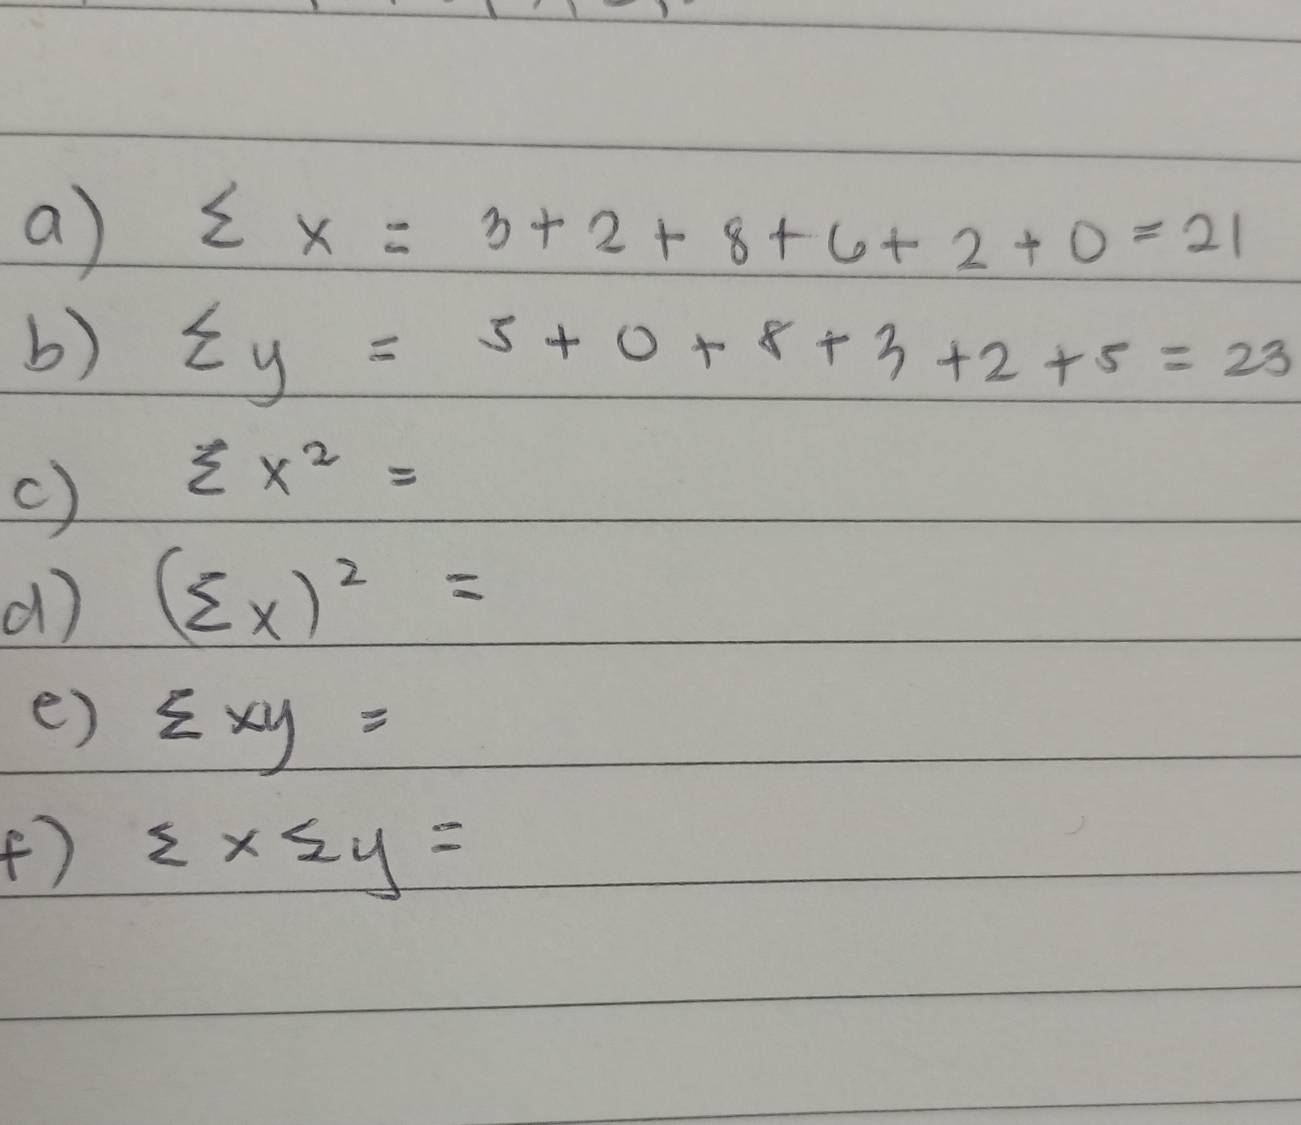 a) Σ x = 3 + 2 + 8 + 6 + 2 + 0 = 21
b) Σ y = 5 + 0 + 8 + 3 + 2 + 5 = 23
c) Σ x² =
d) (Σ x)² =
e) Σ xy =
f) Σ x Σ y =